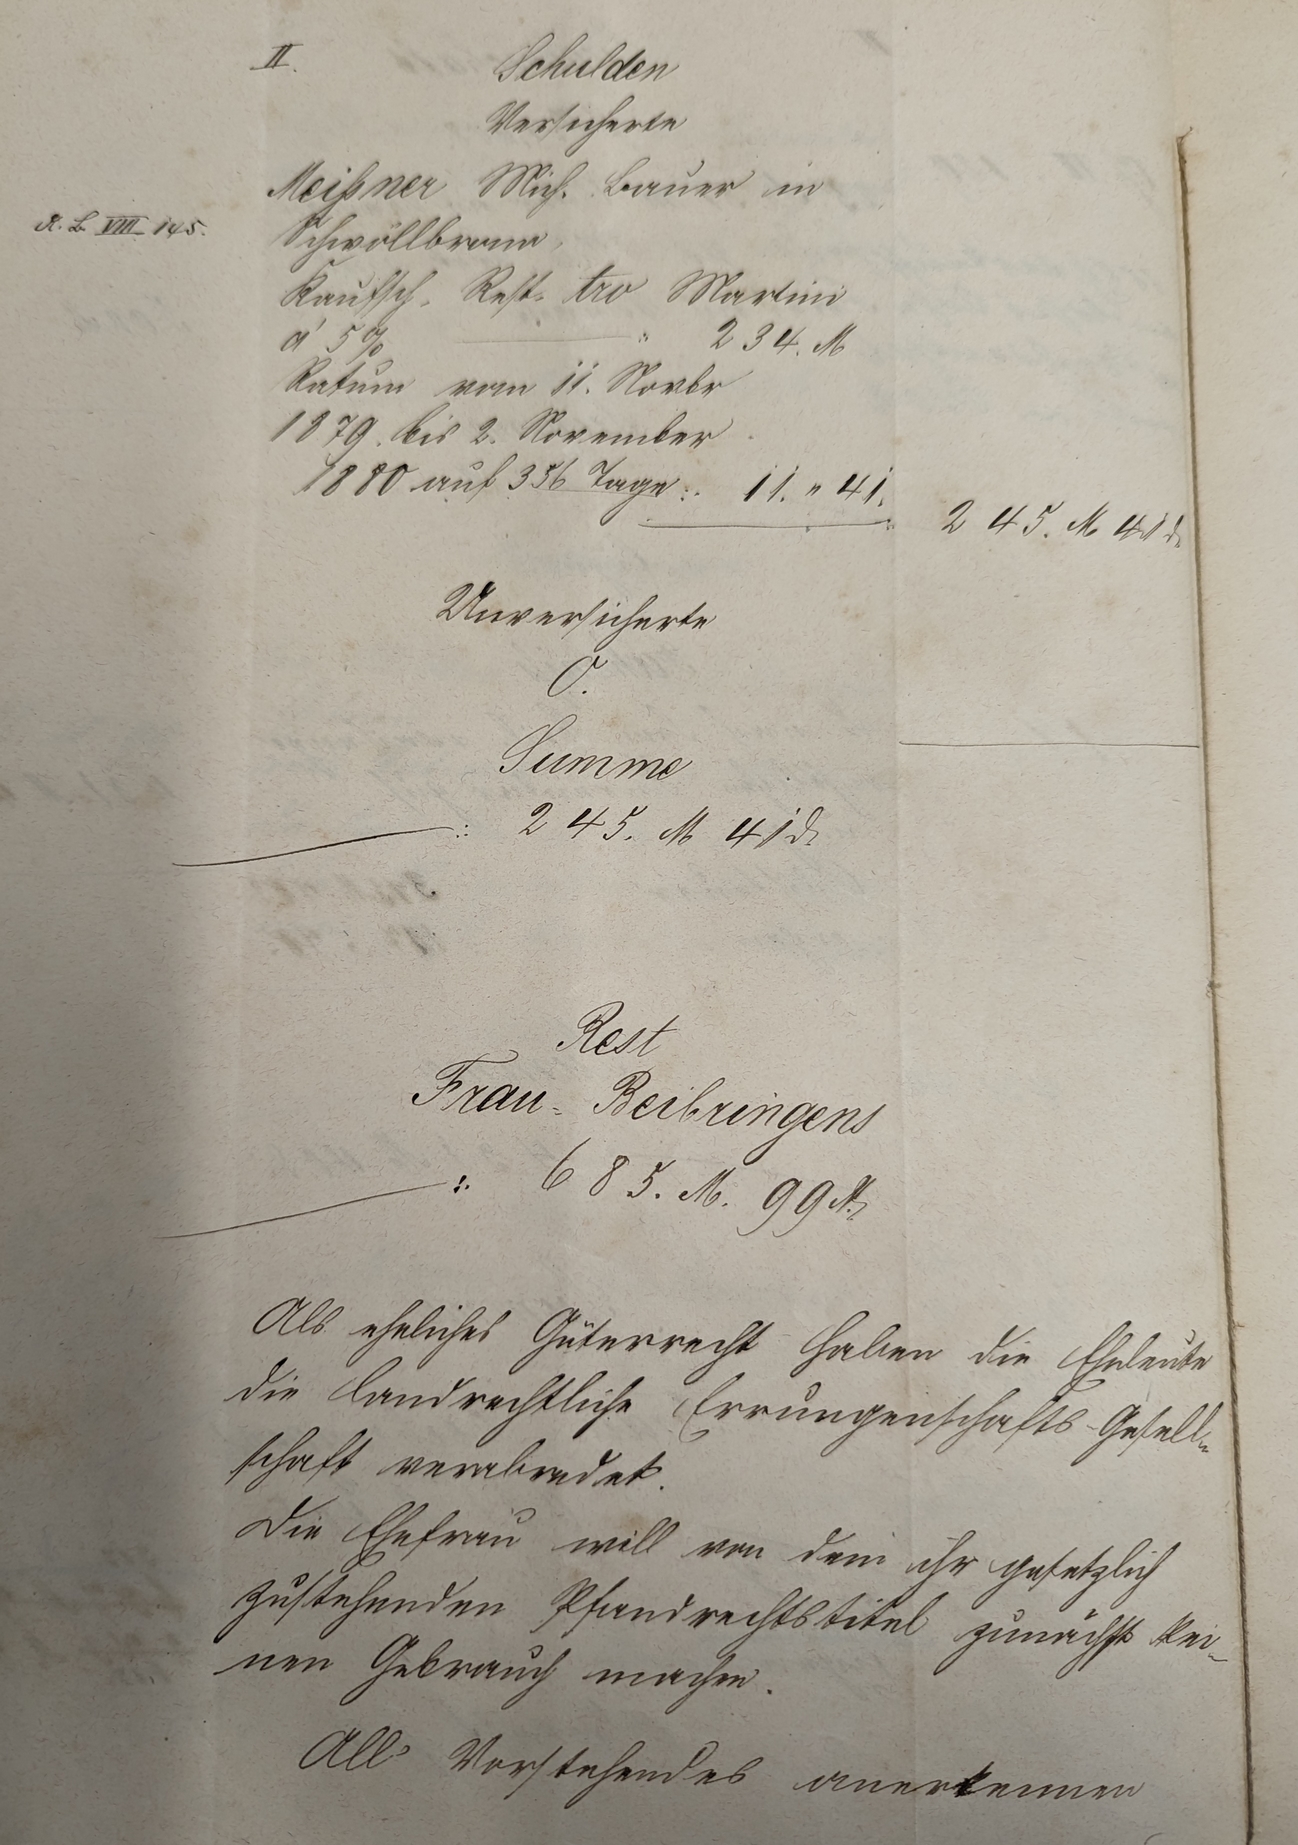 II. Schulden
Versicherte
Meißner Mich. Bauer in
K. B. VIII 145. Schwöllbronn,
Kaufsch. Rest. tro Martini
á 5 % " 234. M
Ratum vom 11. Novbr
1879. bis 2. November
1880 auf 356 Tage :. 11. " 41.
245. M 41 d.
Unversicherte
O.
Summe
: 245. M 41 d.
Rest
Frau-Beibringens
: 685. M. 99 d.
Als eheliches Güterrecht haben die Eheleute
die landrechtliche Errungenschafts-Gesell-
schaft verabredet.
Die Ehefrau will von dem ihr gesetzlich
zustehenden Pfandrechtstitel zunächst kei-
nen Gebrauch machen.
All' Vorstehendes anerkennen